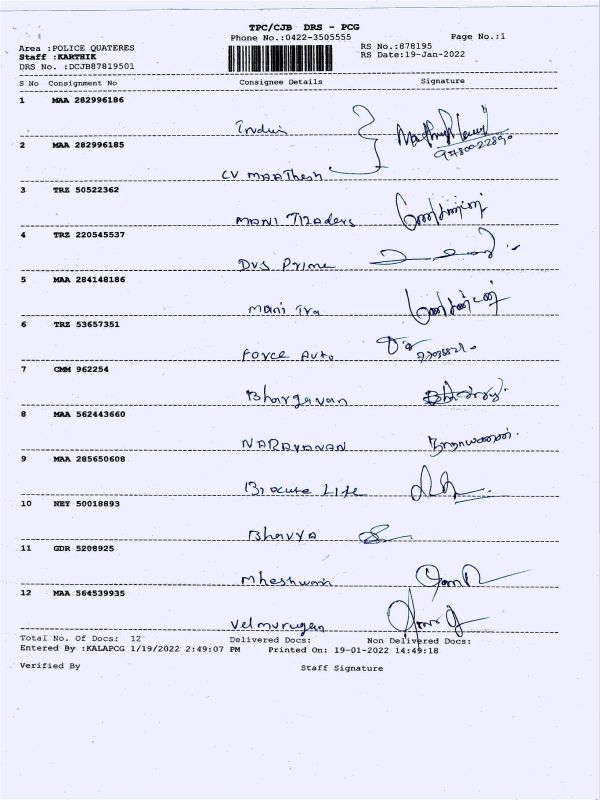 TPC/CJB DRS - PCG
Phone No.:0422-3505555 Page No.:1
Area :POLICE QUATERES RS No.:878195
Staff :KARTHIK RS Date:19-Jan-2022
DRS No. :DCJB87819501
S No Consignment No Consignee Details Signature
1 MAA 282996186
Indui
2 MAA 282996185
CV MAAThesh
3 TRZ 50522362
MANI TRaders
4 TRZ 220545537
DVS Prime
5 MAA 284148186
Mani Tra
6 TRZ 53657351
FORCE AUTO
7 CMM 962254
Bhargavan
8 MAA 562443660
NARAYANAN நாராயணன்.
9 MAA 285650608
Life
10 NEY 50018893
Bhavya
11 GDR 5208925
12 MAA 564539935
Velmurugan
Total No. Of Docs: 12 Delivered Docs: Non Delivered Docs:
Entered By :KALAPCG 1/19/2022 2:49:07 PM Printed On: 19-01-2022 14:49:18
Verified By Staff Signature